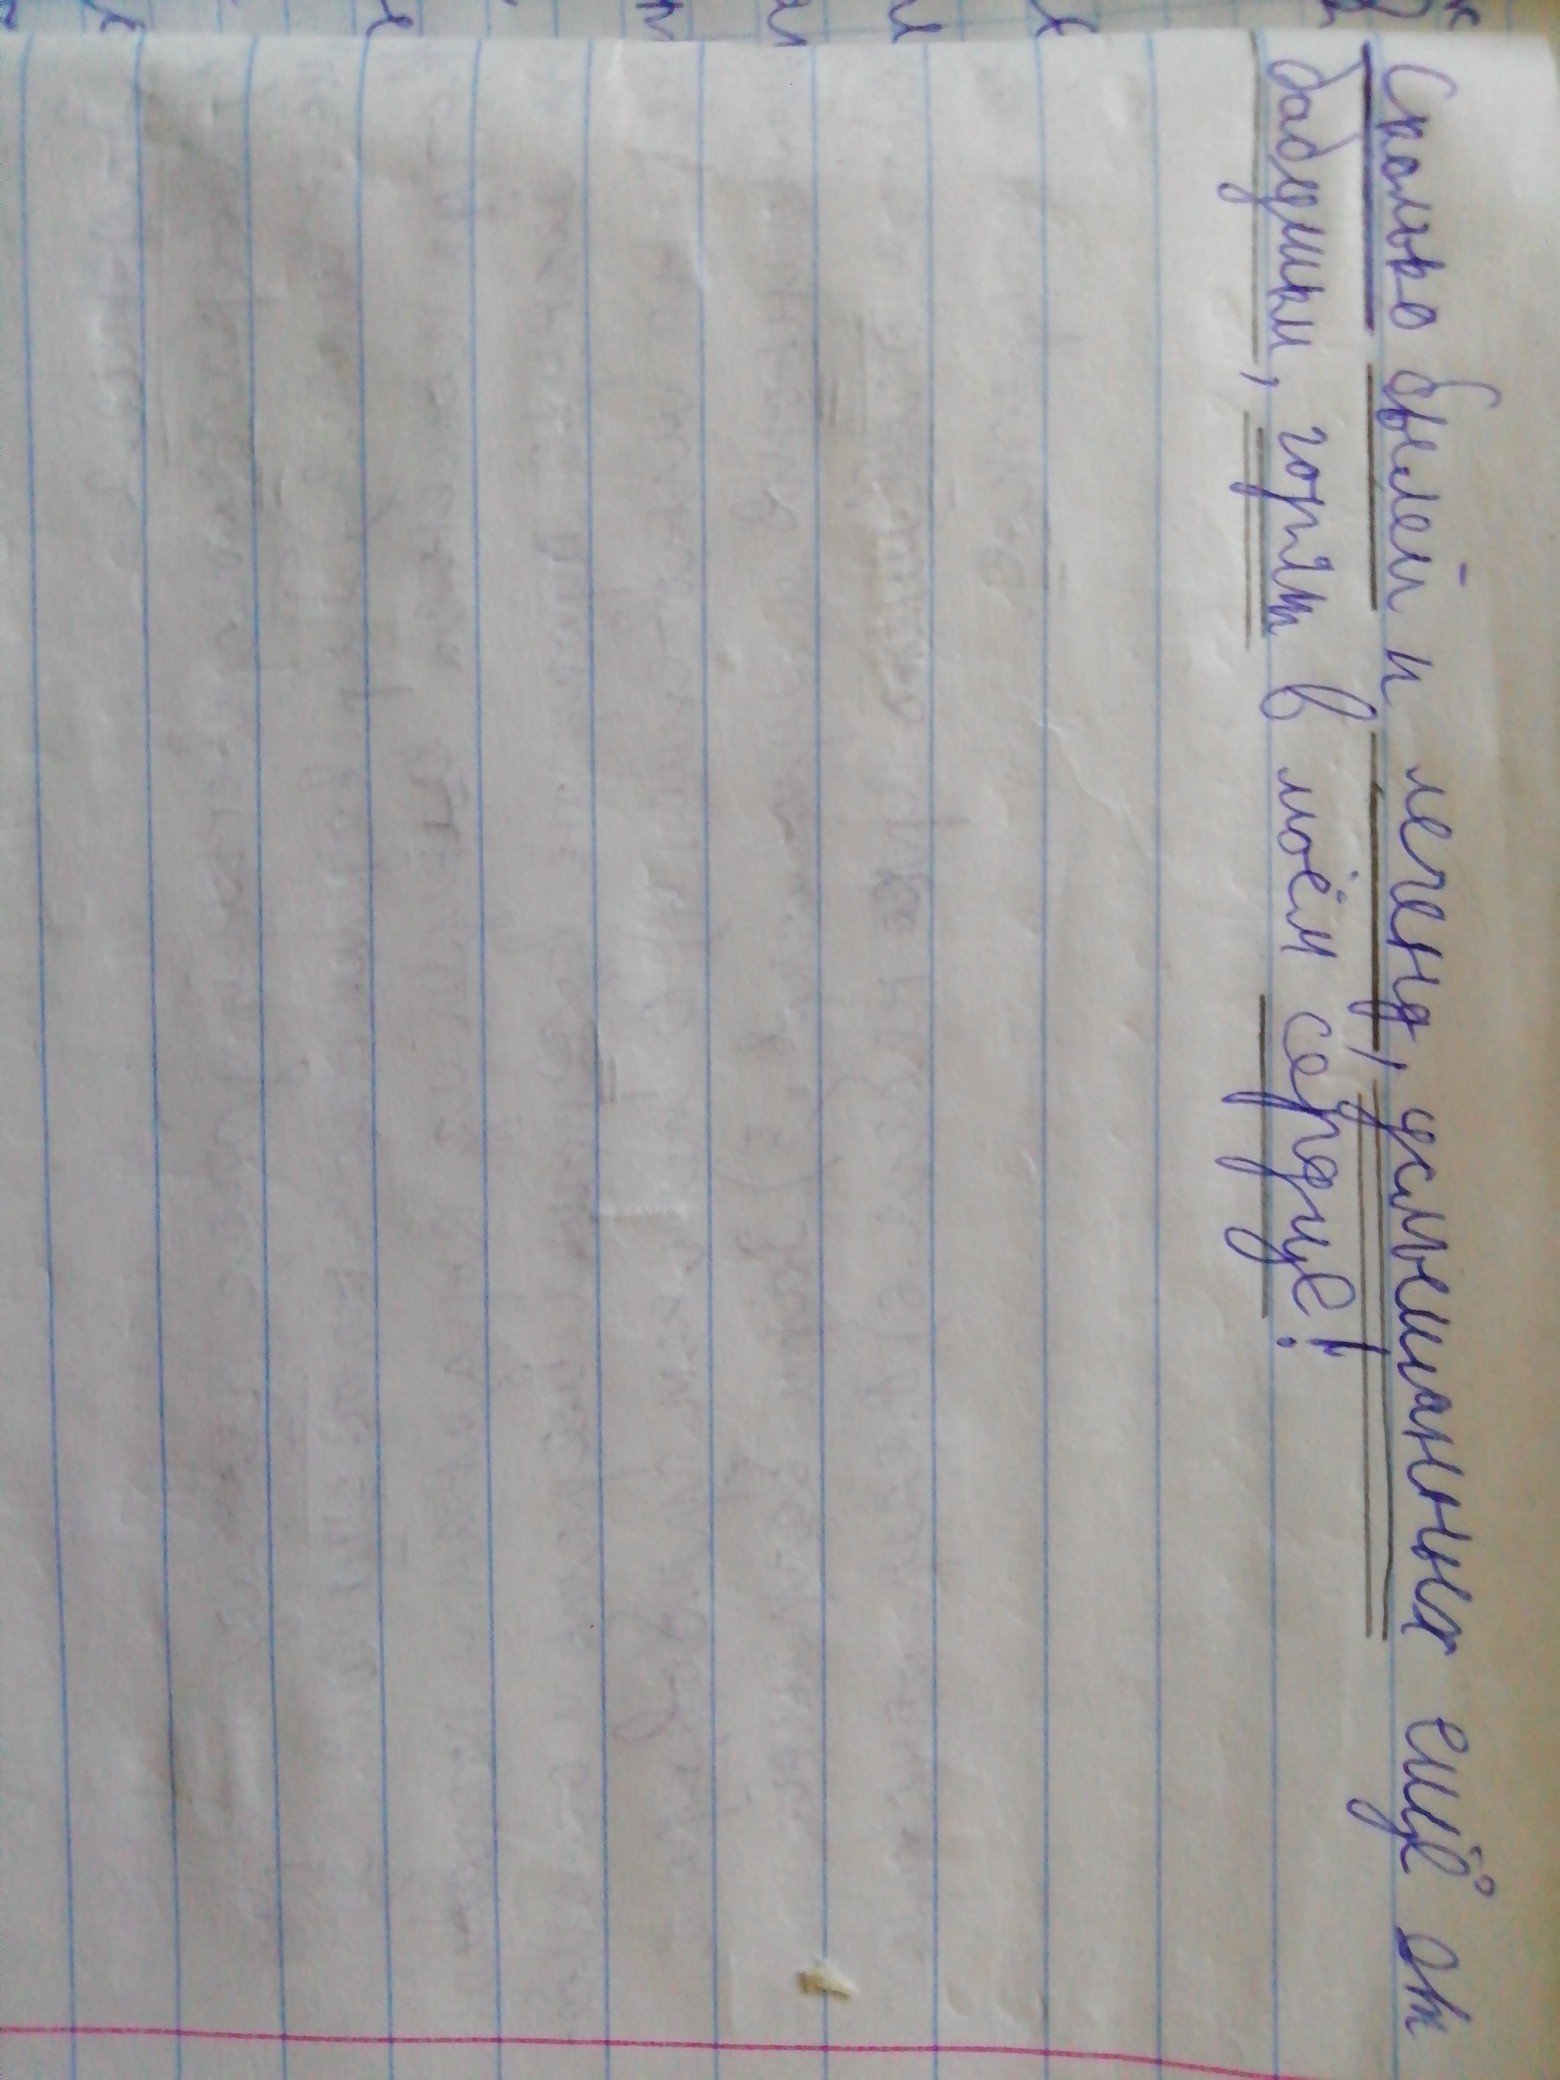 Сколько былей и легенд, услышанных ещё от
бабушки, горят в моём сердце!